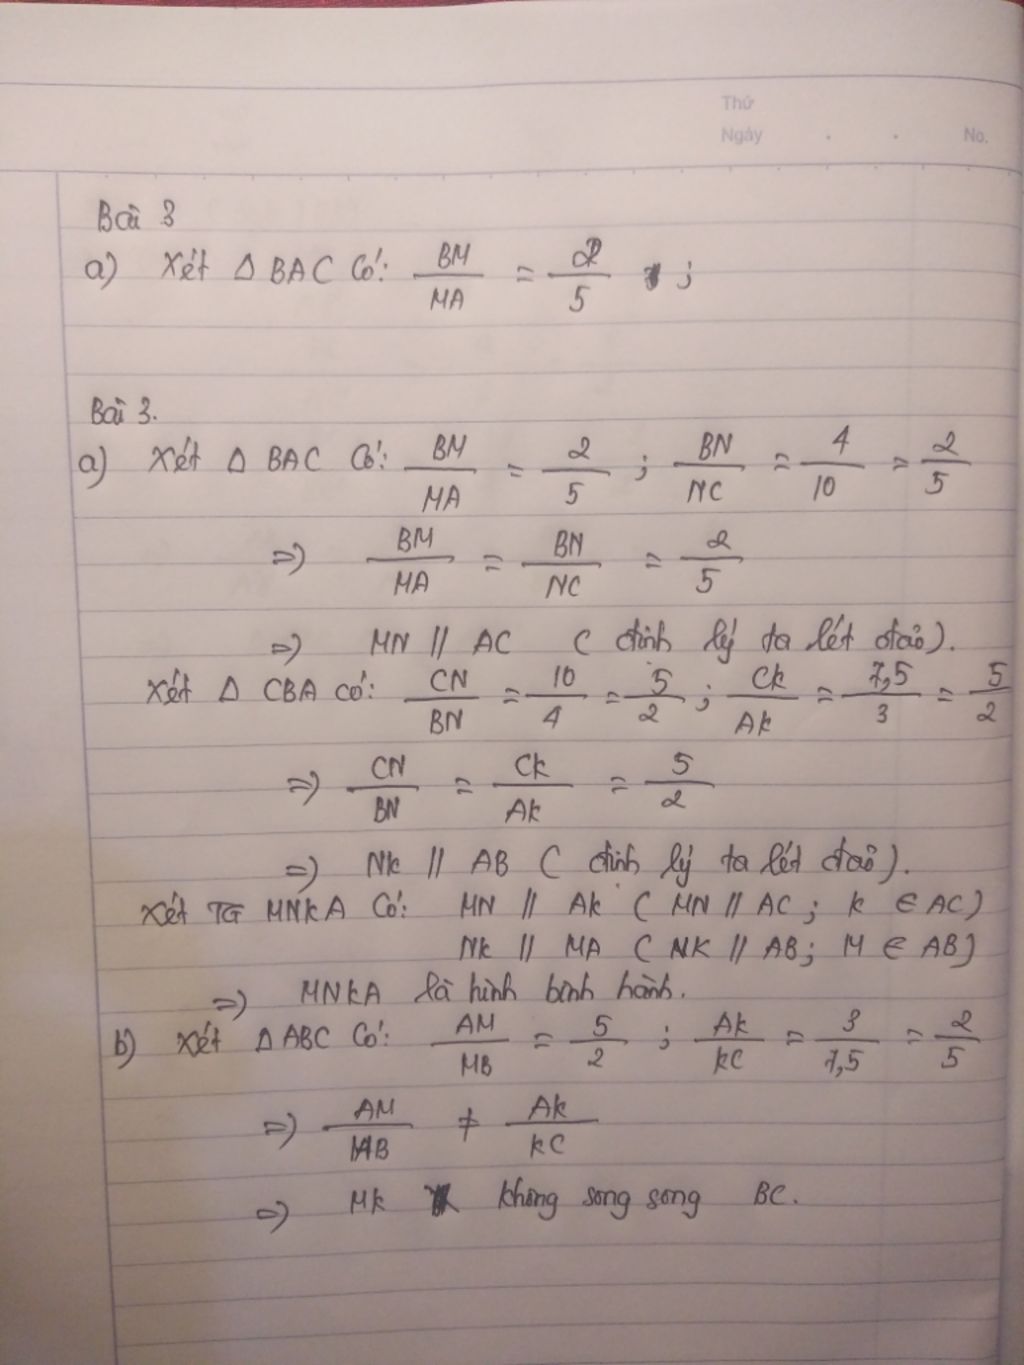 Thứ
Ngày . . No.
Bài 3
a) Xét Δ BAC Có: BM/MA = 2/5 ;
Bài 3.
a) Xét Δ BAC Có: BM/MA = 2/5 ; BN/NC = 4/10 = 2/5
=) BM/MA = BN/NC = 2/5
=) MN // AC ( định lý ta lét đảo).
Xét Δ CBA có: CN/BN = 10/4 = 5/2 ; Ck/Ak = 7,5/3 = 5/2
=) CN/BN = Ck/Ak = 5/2
=) Nk // AB ( định lý ta lét đảo).
Xét TG MNkA Có: MN // Ak ( MN // AC ; k ∈ AC)
Nk // MA ( NK // AB; M ∈ AB)
=) MNkA là hình bình hành.
b) Xét Δ ABC Có: AM/MB = 5/2 ; Ak/kC = 3/7,5 = 2/5
=) AM/MB ≠ Ak/kC
=) Mk không song song BC.